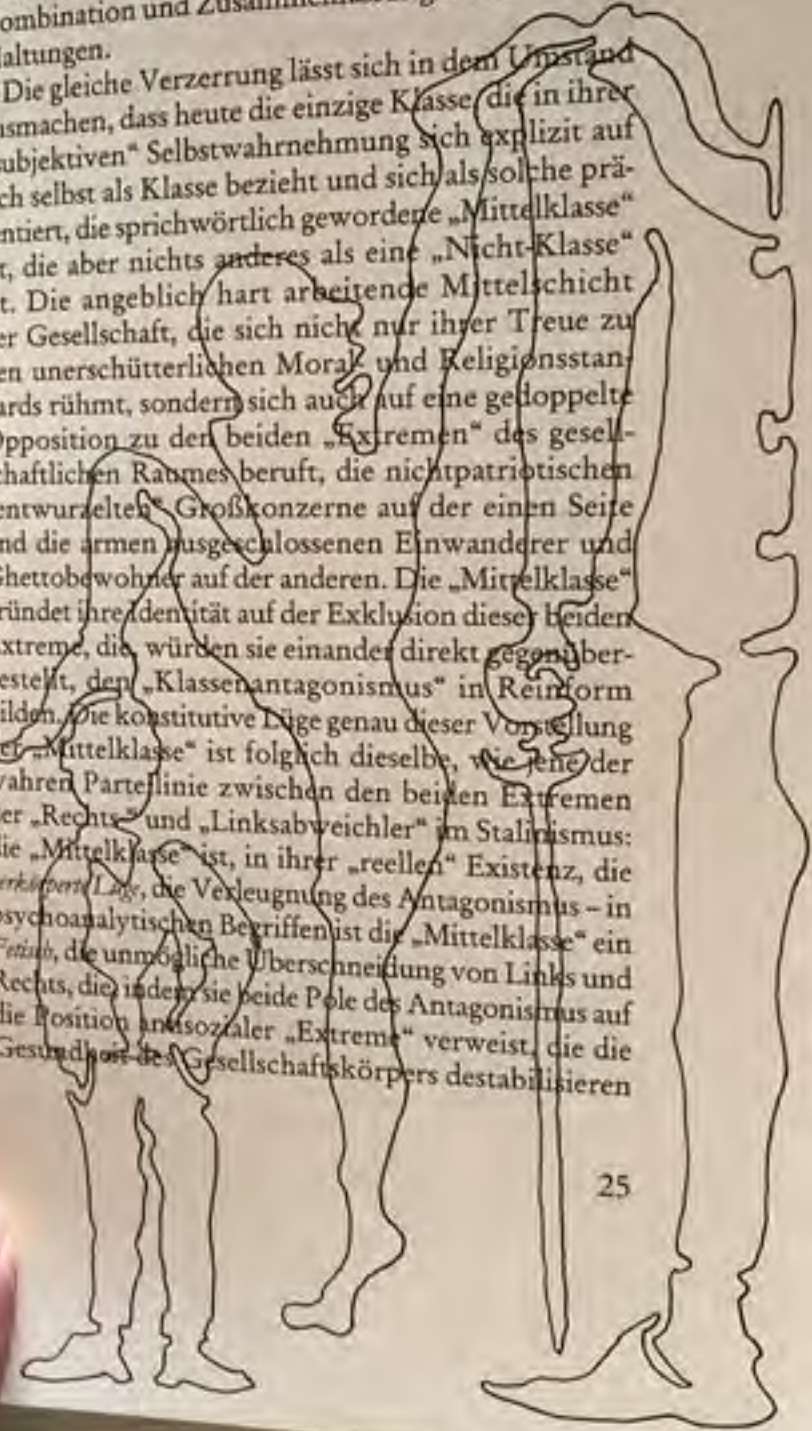 ombination und
altungen.
Die gleiche Verzerrung lässt sich in dem Umstand
usmachen, dass heute die einzige Klasse, die in ihrer
subjektiven“ Selbstwahrnehmung sich explizit auf
ch selbst als Klasse bezieht und sich als solche prä-
entiert, die sprichwörtlich gewordene „Mittelklasse“
t, die aber nichts anderes als eine „Nicht-Klasse“
t. Die angeblich hart arbeitende Mittelschicht
er Gesellschaft, die sich nicht nur ihrer Treue zu
en unerschütterlichen Moral- und Religionsstan-
ards rühmt, sondern sich auch auf eine gedoppelte
Opposition zu den beiden „Extremen“ des gesell-
chaftlichen Raumes beruft, die nichtpatriotischen
entwurzelten“ Großkonzerne auf der einen Seite
nd die armen ausgeschlossenen Einwanderer und
Ghettobewohner auf der anderen. Die „Mittelklasse“
ründet ihre Identität auf der Exklusion dieser beiden
xtreme, die, würden sie einander direkt gegenüber-
estellt, den „Klassenantagonismus“ in Reinform
ilden. Die konstitutive Lüge genau dieser Vorstellung
er „Mittelklasse“ ist folglich dieselbe, wie jene der
wahren Parteilinie zwischen den beiden Extremen
er „Rechts-“ und „Linksabweichler“ im Stalinismus:
die „Mittelklasse“ ist, in ihrer „reellen“ Existenz, die
erkörperte Lüge, die Verleugnung des Antagonismus – in
psychoanalytischen Begriffen ist die „Mittelklasse“ ein
Fetisch, die unmögliche Überschneidung von Links und
Rechts, die, indem sie beide Pole des Antagonismus auf
die Position antisozialer „Extreme“ verweist, die die
Gesundheit des Gesellschaftskörpers destabilisieren
25